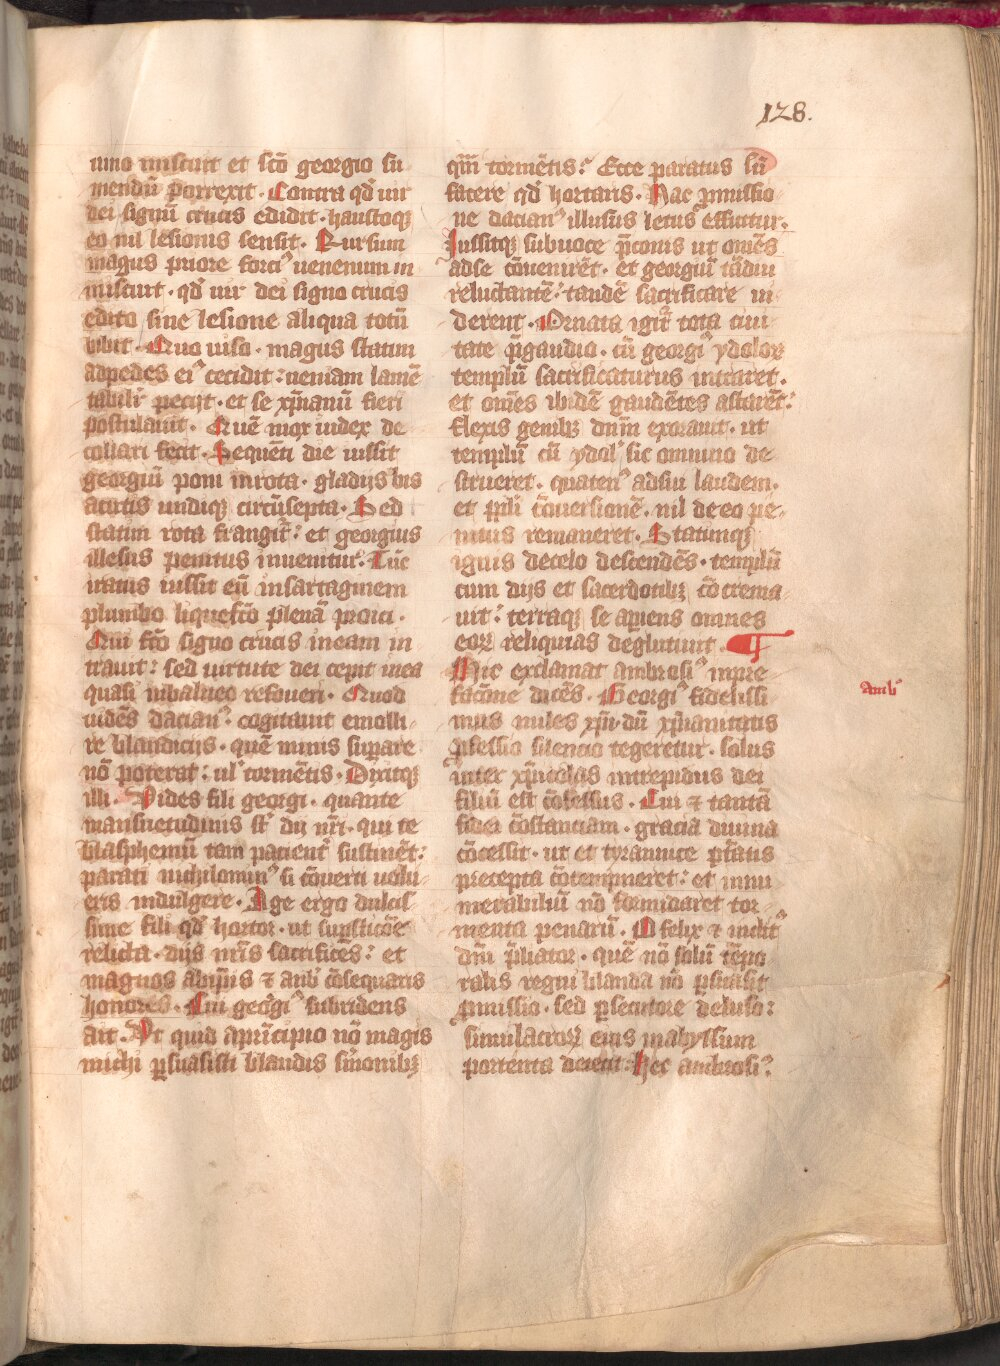 128.
uino miscuit et sctō georgio su
mendū porrexit. Contra qd' uir
dei signū crucis edidit. haustoqꝫ
eo nil lesionis sensit. Rursum
magus priore forciꝰ uenenum in
miscuit. qd' uir dei signo crucis
edito sine lesione aliqua totū
bibit. Quo uiso. magus statim
adpedes eiꝰ cecidit: ueniam lamē
tabilr̄ peciit. et se xp̄ianū fieri
postulauit. Quē mox iudex de
collari fecit. Sequēti die iussit
georgiū poni inrota. gladijs bis
acutis undiqꝫ circūsepta. Sed
statim rota frangit̄: et georgius
illesus penitus inuenitur. Tūc
iratus iussit eū insartaginem
plumbo liquefctō plenā proici.
Qui fctō signo crucis ineam in
trauit: sed uirtute dei cepit inea
quasi inbalneo refoueri. Quod
uidēs dacianꝰ. cogitauit emolli
re blandicijs. quē minis supare
nō poterat: ul' tormētis. Dixitqꝫ
illi. Vides fili georgi. quante
mansuetudinis st̄ dij nr̄i. qui te
blasphemū tam pacient̄ sustinēt:
parati nichilominꝰ si cōuerti uolu
eris indulgere. Age ergo dulcis
sime fili qd' hortor. ut sup̄sticōe
relicta. dijs nr̄is sacrifices: et
magnos abip̄is ⁊ anb' cōsequaris
honores. Cui georgiꝰ subridens
ait. Vt quid aprīcipio nō magis
michi ꝑsuasisti blandis s̄monibꝫ
qm̄ tormētis? Ecce paratus sū
facere qd' hortaris. Hac ꝓmissio
ne dacianꝰ illusus letus efficitur.
Jussitqꝫ subuoce p̄conis ut om̄es
adse cōuenirēt. et georgiū tādiu
reluctantē: tandē sacrificare ui
derent. Ornata igit̄ tota ciui
tate p̄gaudio. cū georgiꝰ ydoloꝝ
templū sacrificaturus intraret.
et om̄es ibidē gaudētes astarēt:
flexis genibꝫ dn̄m exorauit. ut
templū cū ydol' sic omnino de
strueret. quatenꝰ adsui laudem.
et ppl'i cōuersionē. nil deeo pe
nitus remaneret. Statimqꝫ
ignis decelo descendēs. templū
cum dijs et sacerdotibꝫ cōcrema
uit: terraqꝫ se aperiens omnes
eoꝝ reliquias deglutiuit. ¶
Hic exclamat ambrosiꝰ inpre
facōne dicēs. Georgiꝰ fidelissi
mus miles xp̄i. dū xp̄ianitatis
ꝓfessio silencio tegeretur. solus
inter xp̄icolas intrepidus dei
filiū est cōfessus. Cui ⁊ tantā
fidei cōstanciam. gracia diuina
cōcessit. ut et tyrannice ptātis
precepta cōtempneret: et innu
merabiliū nō formidaret tor
menta penarū. O felix ⁊ inclitꝰ
dn̄i p̄liator. quē nō solū tēpo
ralis regni blanda nō ꝑsuasit
ꝓmissio. sed ꝑsecutore deluso:
simulacroꝝ eius inabyssum
portenta deiecit: Hec ambrosiꝰ.
Amb'